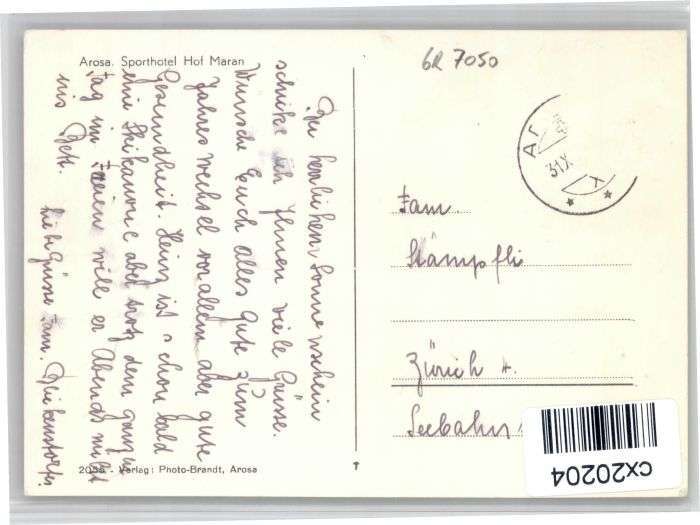 Arosa. Sporthotel Hof Maran
GR 7050
Bei herrlichem Sonnenschein
schicke ich Ihnen viele Grüsse.
Wünsche Euch alles gute zum
Jahreswechsel vor allem aber gute
Gesundheit. Heinz ist schon bald
eine Skikanone aber trotz dem ganzen
Tag im Freien will er Abends nicht
ins Bett.
Liebe Grüsse Fam.
Fam.
Stämpfli
Zürich 4.
Seebahn
AR
31.X
- Verlag: Photo-Brandt, Arosa
cx20204